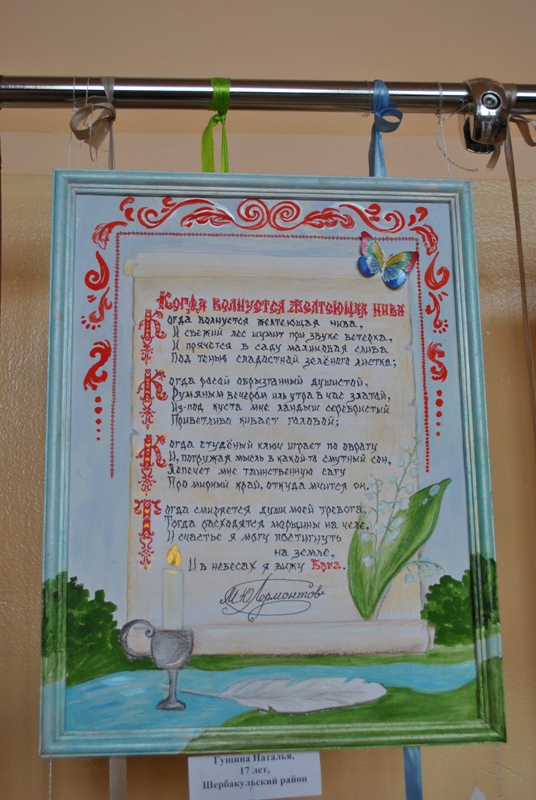 Когда волнуется желтеющая нива
Когда волнуется желтеющая нива,
И свежий лес шумит при звуке ветерка,
И прячется в саду малиновая слива
Под тенью сладостной зелёного листка;
Когда росой обрызганный душистой,
Румяным вечером иль утра в час златой,
Из-под куста мне ландыш серебристый
Приветливо кивает головой;
Когда студёный ключ играет по оврагу
И, погружая мысль в какой-то смутный сон,
Лепечет мне таинственную сагу
Про мирный край, откуда мчится он.
Тогда смиряется души моей тревога,
Тогда расходятся морщины на челе,
И счастье я могу постигнуть
на земле,
И в небесах я вижу Бога.
М.Ю.Лермонтов
Гущина Наталья,
17 лет,
Шербакульский район